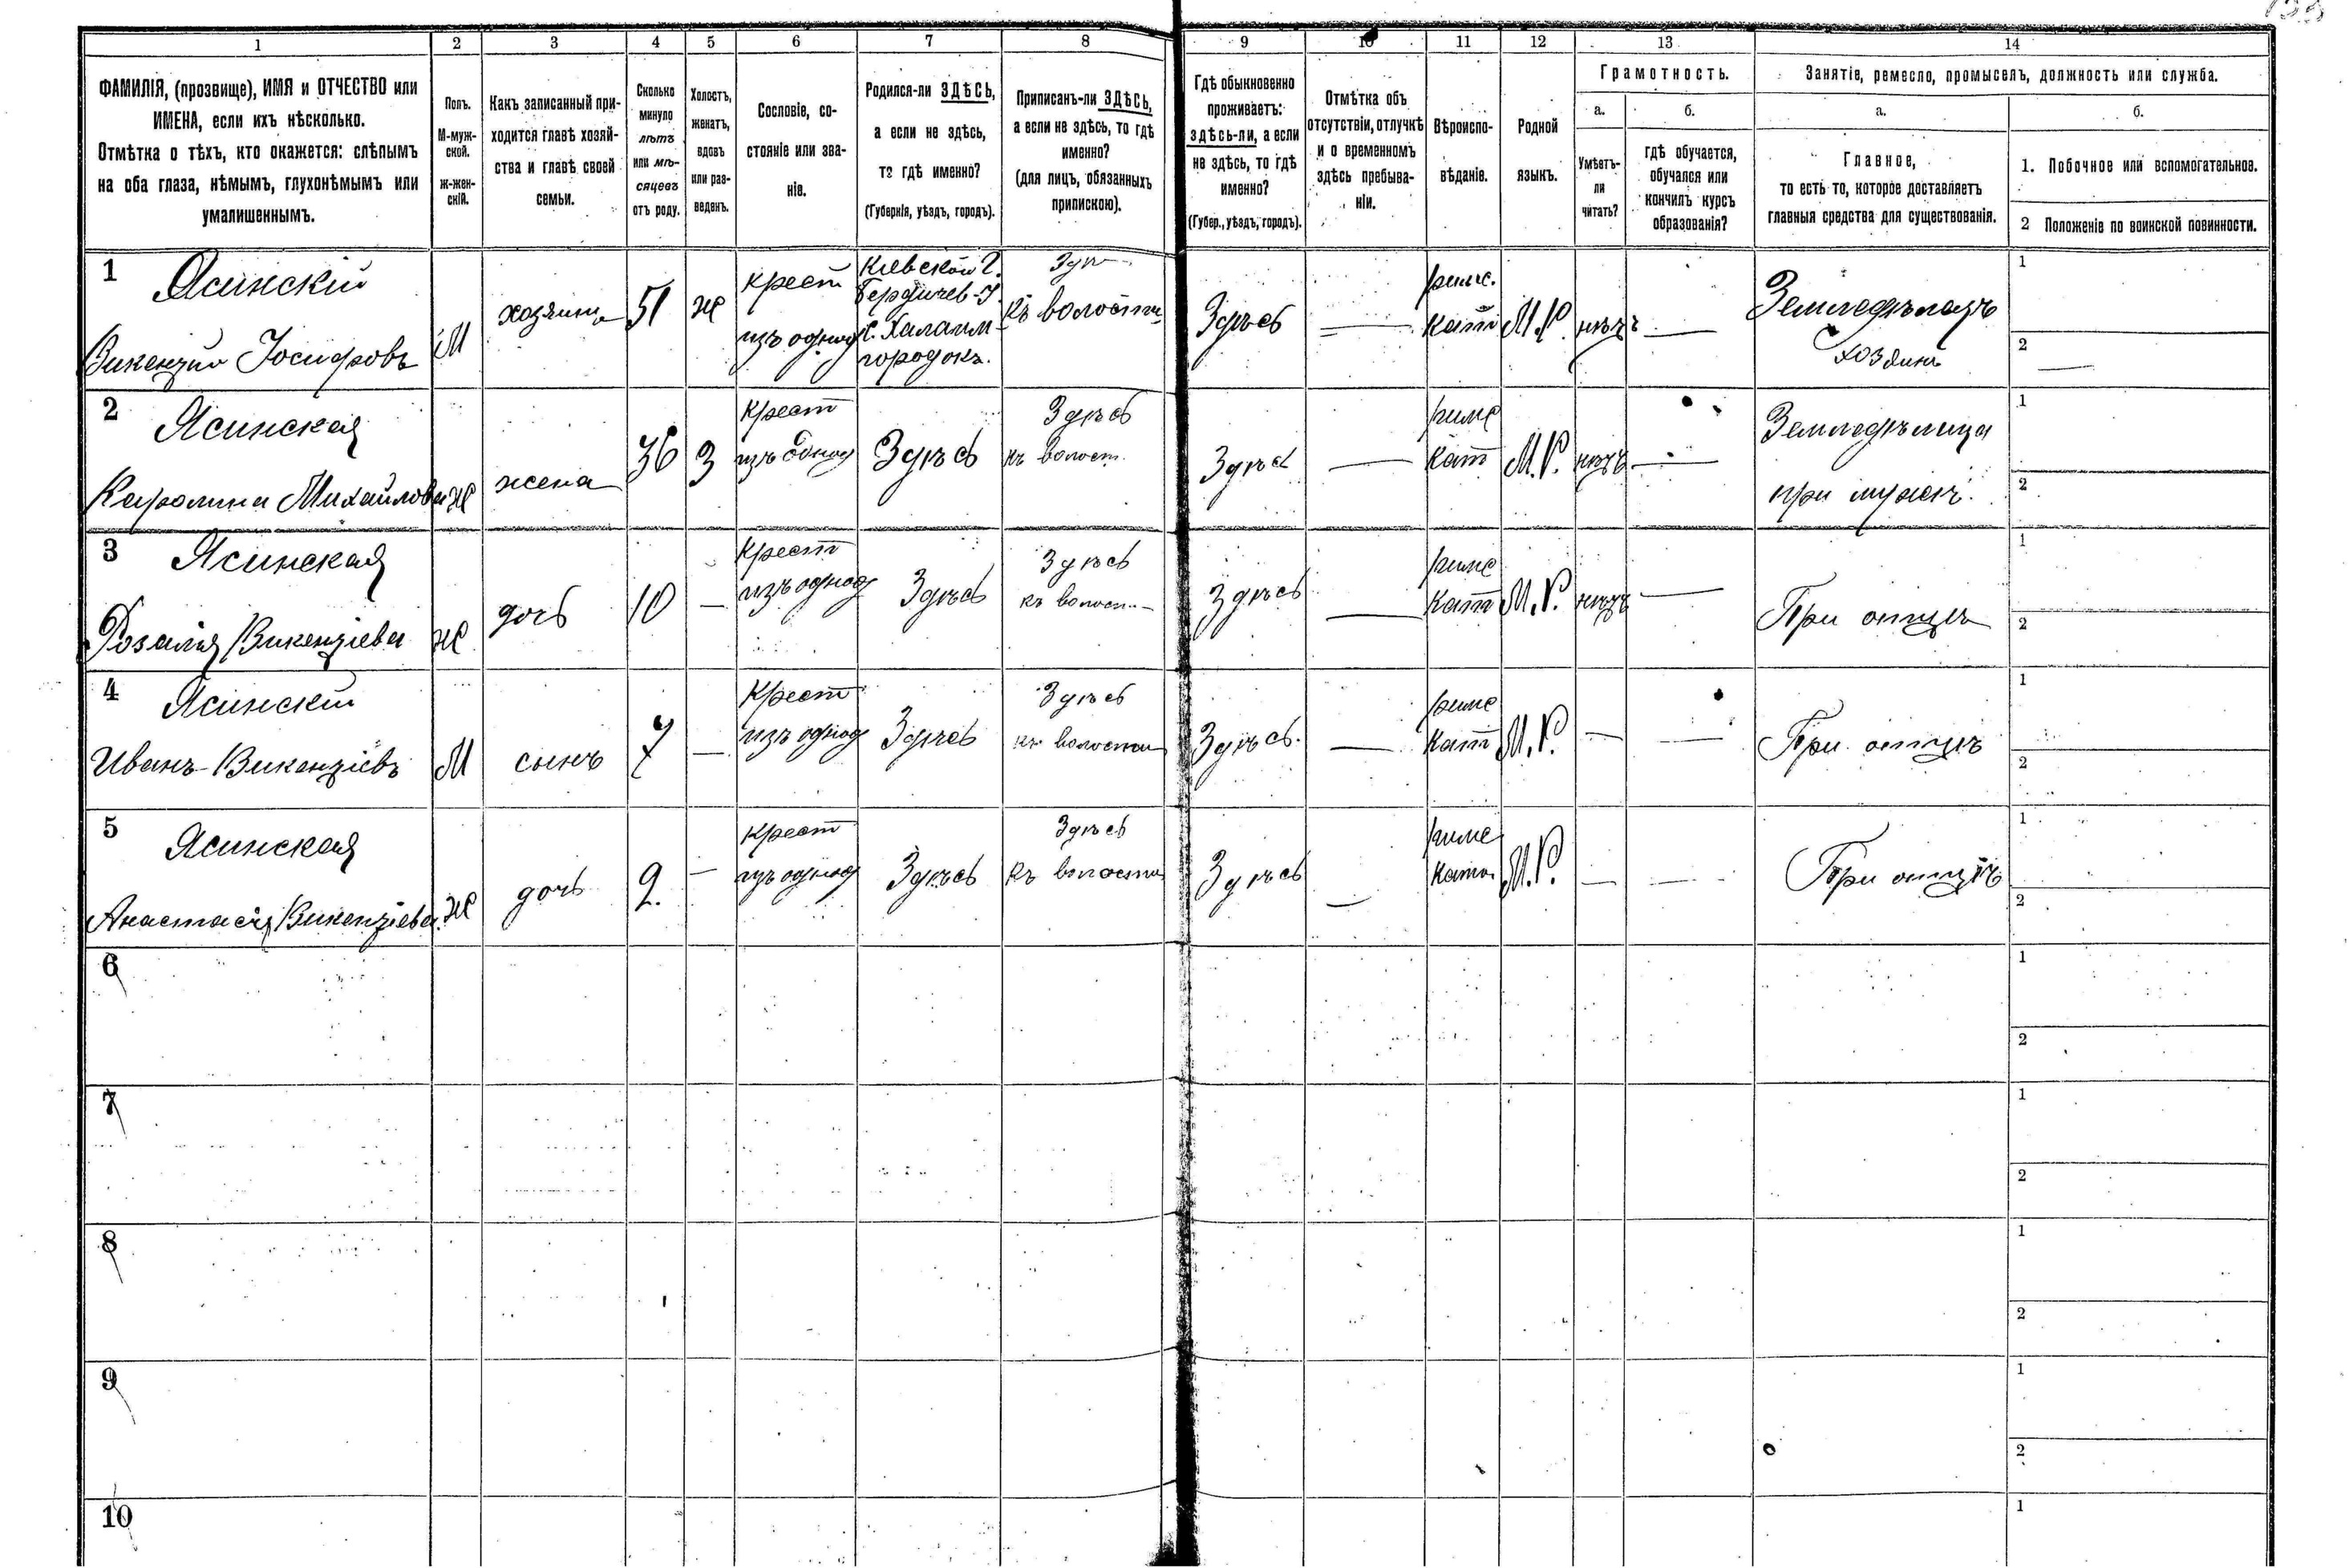 1 2 3 4 5 6 7 8 9 10 11 12 13 14
ФАМИЛІЯ, (прозвище), ИМЯ и ОТЧЕСТВО или
ИМЕНА, если ихъ нѣсколько.
Отмѣтка о тѣхъ, кто окажется: слѣпымъ
на оба глаза, нѣмымъ, глухонѣмымъ или
умалишеннымъ.
Полъ.
М-муж-
ской.
ж-жен-
скій.
Какъ записанный при-
ходится главѣ хозяй-
ства и главѣ своей
семьи.
Сколько
минуло
лѣтъ
или мѣ-
сяцевъ
отъ роду.
Холостъ,
женатъ,
вдовъ
или раз-
веденъ.
Сословіе, со-
стояніе или зва-
ніе.
Родился-ли ЗДѢСЬ,
а если не здѣсь,
то гдѣ именно?
(Губернія, уѣздъ, городъ).
Приписанъ-ли ЗДѢСЬ,
а если не здѣсь, то гдѣ
именно?
(для лицъ, обязанныхъ
припискою).
Гдѣ обыкновенно
проживаетъ:
здѣсь-ли, а если
не здѣсь, то гдѣ
именно?
(Губер., уѣздъ, городъ).
Отмѣтка объ
отсутствіи, отлучкѣ
и о временномъ
здѣсь пребыва-
ніи.
Вѣроиспо-
вѣданіе.
Родной
языкъ.
Грамотность.
а.
Умѣетъ-
ли
читать?
б.
гдѣ обучается,
обучался или
кончилъ курсъ
образованія?
Занятіе, ремесло, промыселъ, должность или служба.
а.
Главное,
то есть то, которое доставляетъ
главныя средства для существованія.
б.
1. Побочное или вспомогательное.
2 Положеніе по воинской повинности.
1
Ясинскій
Викентій Іосифовъ
М
хозяинъ
51
ж
крест
изъ однод
Кіевской Г.
Бердичев. У.
городокъ.
къ волости
Здѣсь
—
римс.
кат
М.Р.
нѣтъ
—
Земледѣлецъ
хозяинъ
1
2
—
2
Ясинская
Каролина Михайлова
ж
жена
36
З
крест
изъ однод
Здѣсь
Здѣсь
къ волост.
Здѣсь
—
римс
кат
М.Р.
нѣтъ
—
Земледѣлица
при мужѣ.
1
2
3
Ясинская
Розалія Викентіева
ж
дочь
10
—
крест
изъ однод
Здѣсь
Здѣсь
къ волост.
Здѣсь
—
римс
кат
М.Р.
нѣтъ
—
При отцѣ
1
2
4
Ясинскій
Иванъ Викентіевъ
М
сынъ
7
—
крест
изъ однод
Здѣсь
Здѣсь
къ волости
Здѣсь.
—
римс
кат
М.Р.
—
—
При отцѣ
1
2
5
Ясинская
Анастасія Викентіева.
ж
дочь
2.
—
крест
изъ однод
Здѣсь
Здѣсь
къ волости
Здѣсь
—
римс
кат.
М.Р.
—
—
При отцѣ
1
2
6
1
2
7
1
2
8
1
2
9
1
2
10
1